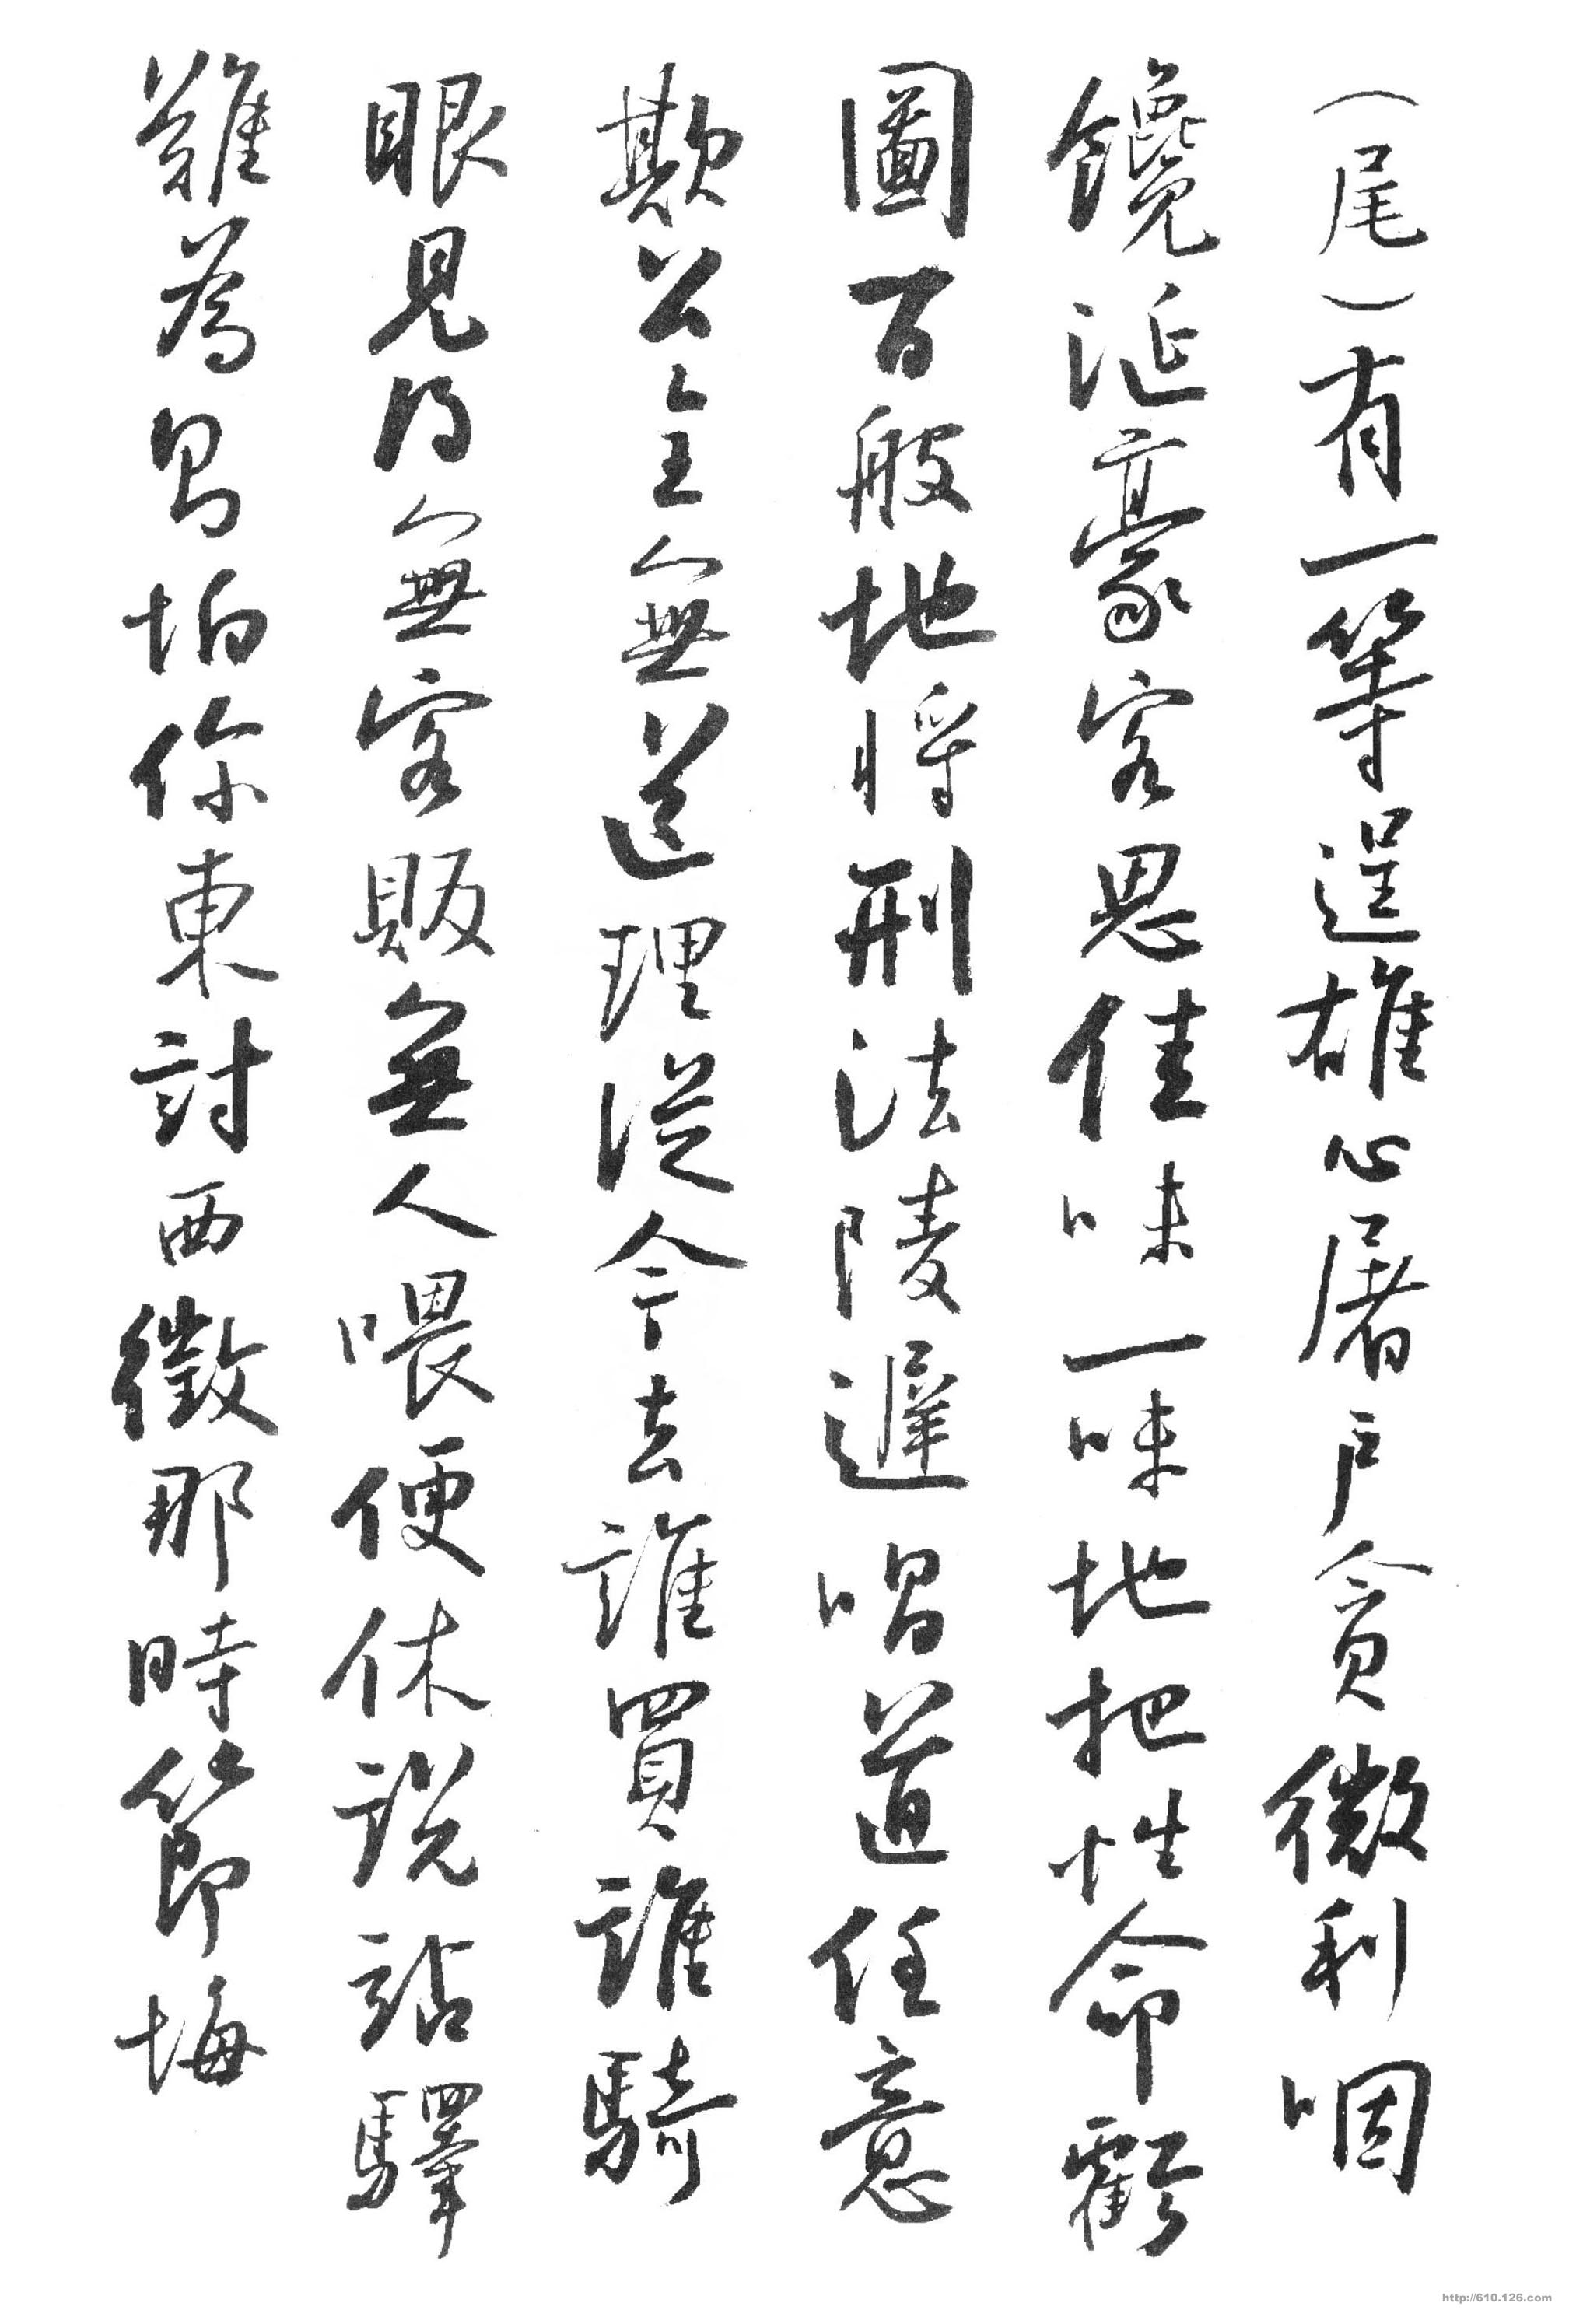 （尾）有一等逞雄心屠户貪微利咽
饞涎豪客思佳味一味地把性命虧
圖百般地將刑法陵遲唱道任意
欺公全無道理從今去誰買誰騎
眼見得無客販無人喂便休説站驛
難爲怕你東討西徵那時節悔
http://610.126.com